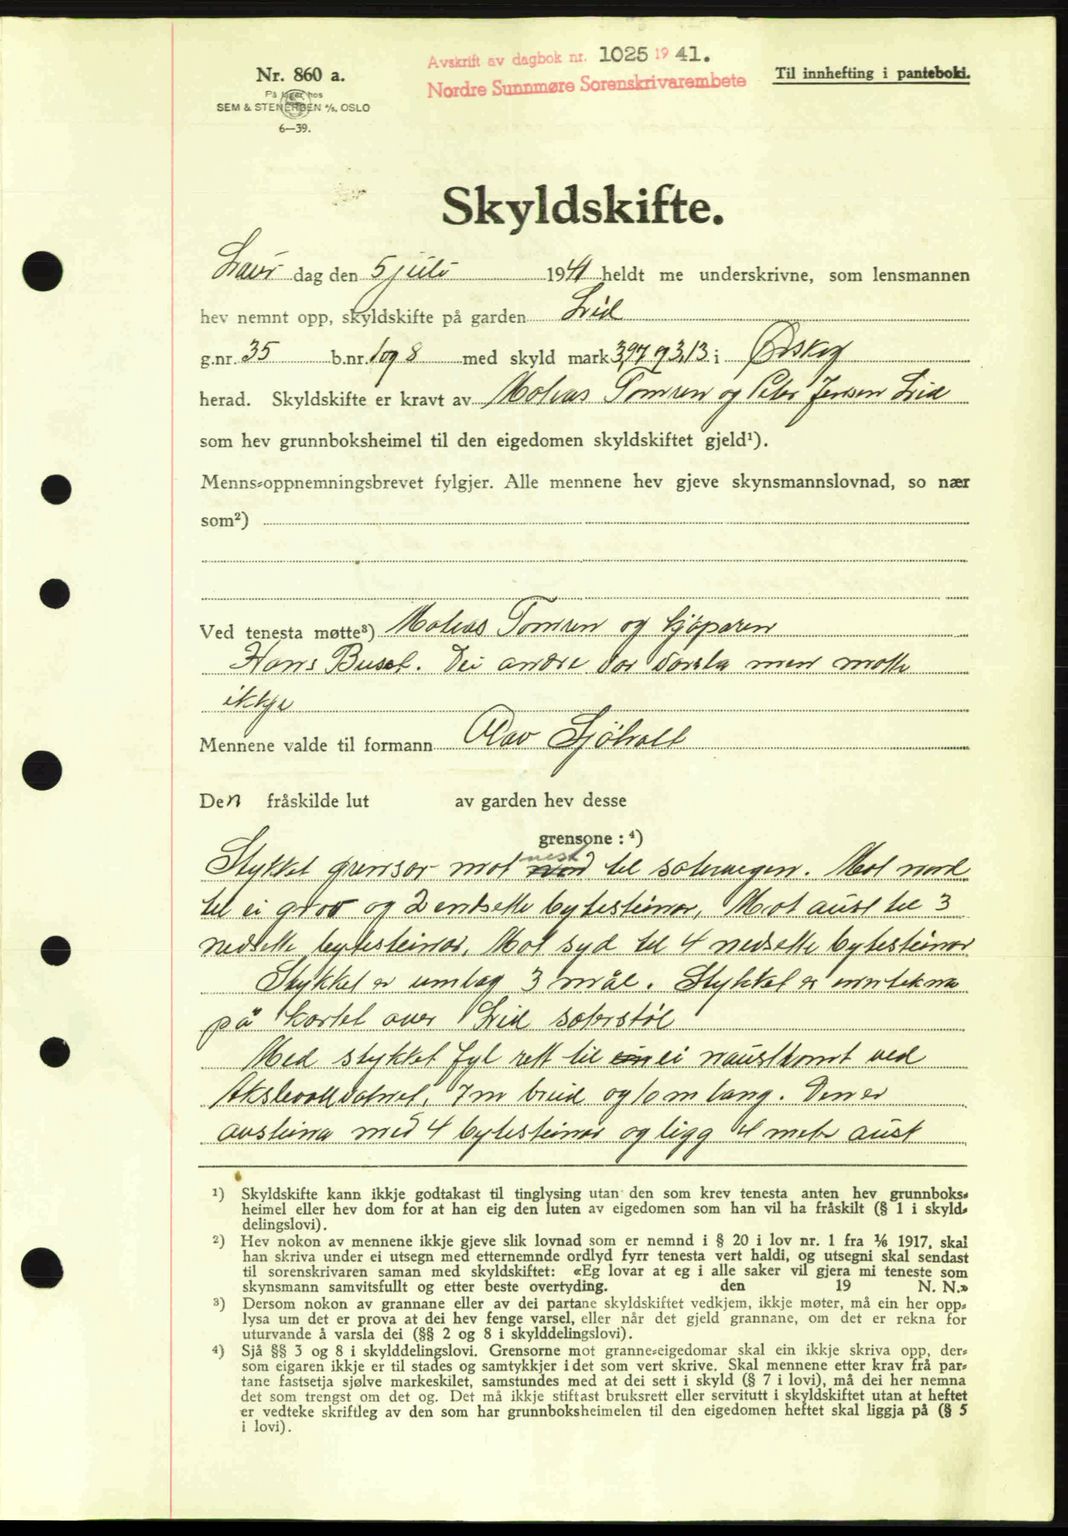 Nr. 860 a.
På lager hos
SEM & STENERSEN A/S, OSLO
6—39.
Avskrift av dagbok nr. 1025 1941.
Nordre Sunnmøre Sorenskrivarembete
Til innhefting i panteboki.
Skyldskifte.
Laur dag den 5 juli 1941 heldt me underskrivne, som lensmannen
hev nemnt opp, skyldskifte på garden Lid
g.nr. 35 b.nr. 1 og 8 med skyld mark 3,97 og 3,13 i Ørskog
herad. Skyldskifte er kravt av Matias Tomren og Peter Jensen Lid
som hev grunnboksheimel til den eigedomen skyldskiftet gjeld¹).
Menns-oppnemningsbrevet fylgjer. Alle mennene hev gjeve skynsmannslovnad, so nær
som²)
Ved tenesta møtte³) Matias Tomren og kjöparen
Hans Buset. Dei andre var varsla men møtte
ikkje
Mennene valde til formann Olav Sjöholt
Den fråskilde lut av garden hev desse
grensone : ⁴)
Stykket grensar mot vest til sætervegen. Mot nord
til ei grov og 2 nedsette bytesteinar, Mot aust til 3
nedsette bytesteinar. Mot syd til 4 nedsette bytesteinar
Stykket er umlag 3 mål. Stykket er innteikna
på kartet over Lid seterstöl
Med stykket fyl rett til ei nausttomt ved
7m breid og 10 m lang. Den er
med 4 bytesteinar og ligg 4 meter aust
¹) Skyldskifte kann ikkje godtakast til tinglysing utan den som krev tenesta anten hev grunnboks-
heimel eller hev dom for at han eig den luten av eigedomen som han vil ha fråskilt (§ 1 i skyld-
delingslovi).
²) Hev nokon av mennene ikkje gjeve slik lovnad som er nemnd i § 20 i lov nr. 1 fra ⅙ 1917, skal
han skriva under ei utsegn med etternemnde ordlyd fyrr tenesta vert haldi, og utsegni skal sendast
til sorenskrivaren saman med skyldskiftet: «Eg lovar at eg i alle saker vil gjera mi teneste som
skynsmann samvitsfullt og etter beste overtyding. den 19 N. N.»
³) Dersom nokon av grannane eller av dei partane skyldskiftet vedkjem, ikkje møter, må ein her opp-
lysa um det er prova at dei hev fenge varsel, eller når det gjeld grannane, om det er rekna for
uturvande å varsla dei (§§ 2 og 8 i skylddelingslovi).
⁴) Sjå §§ 3 og 8 i skylddelingslovi. Grensorne mot granne-eigedomar skal ein ikkje skriva opp, der-
som eigaren ikkje er til stades og samtykkjer i det som vert skrive. Skal mennene etter krav frå par-
tane fastsetja sjølve markeskilet, samstundes med at dei sett i skyld (§ 7 i lovi), må dei her nemna
det som trengst om det og. Det må ikkje stiftast bruksrett eller servitutt i skyldskiftet utan at heftet
er vedteke skriftleg av den som har grunnboksheimelen til den eigedomen heftet skal liggja på (§ 5
i lovi).